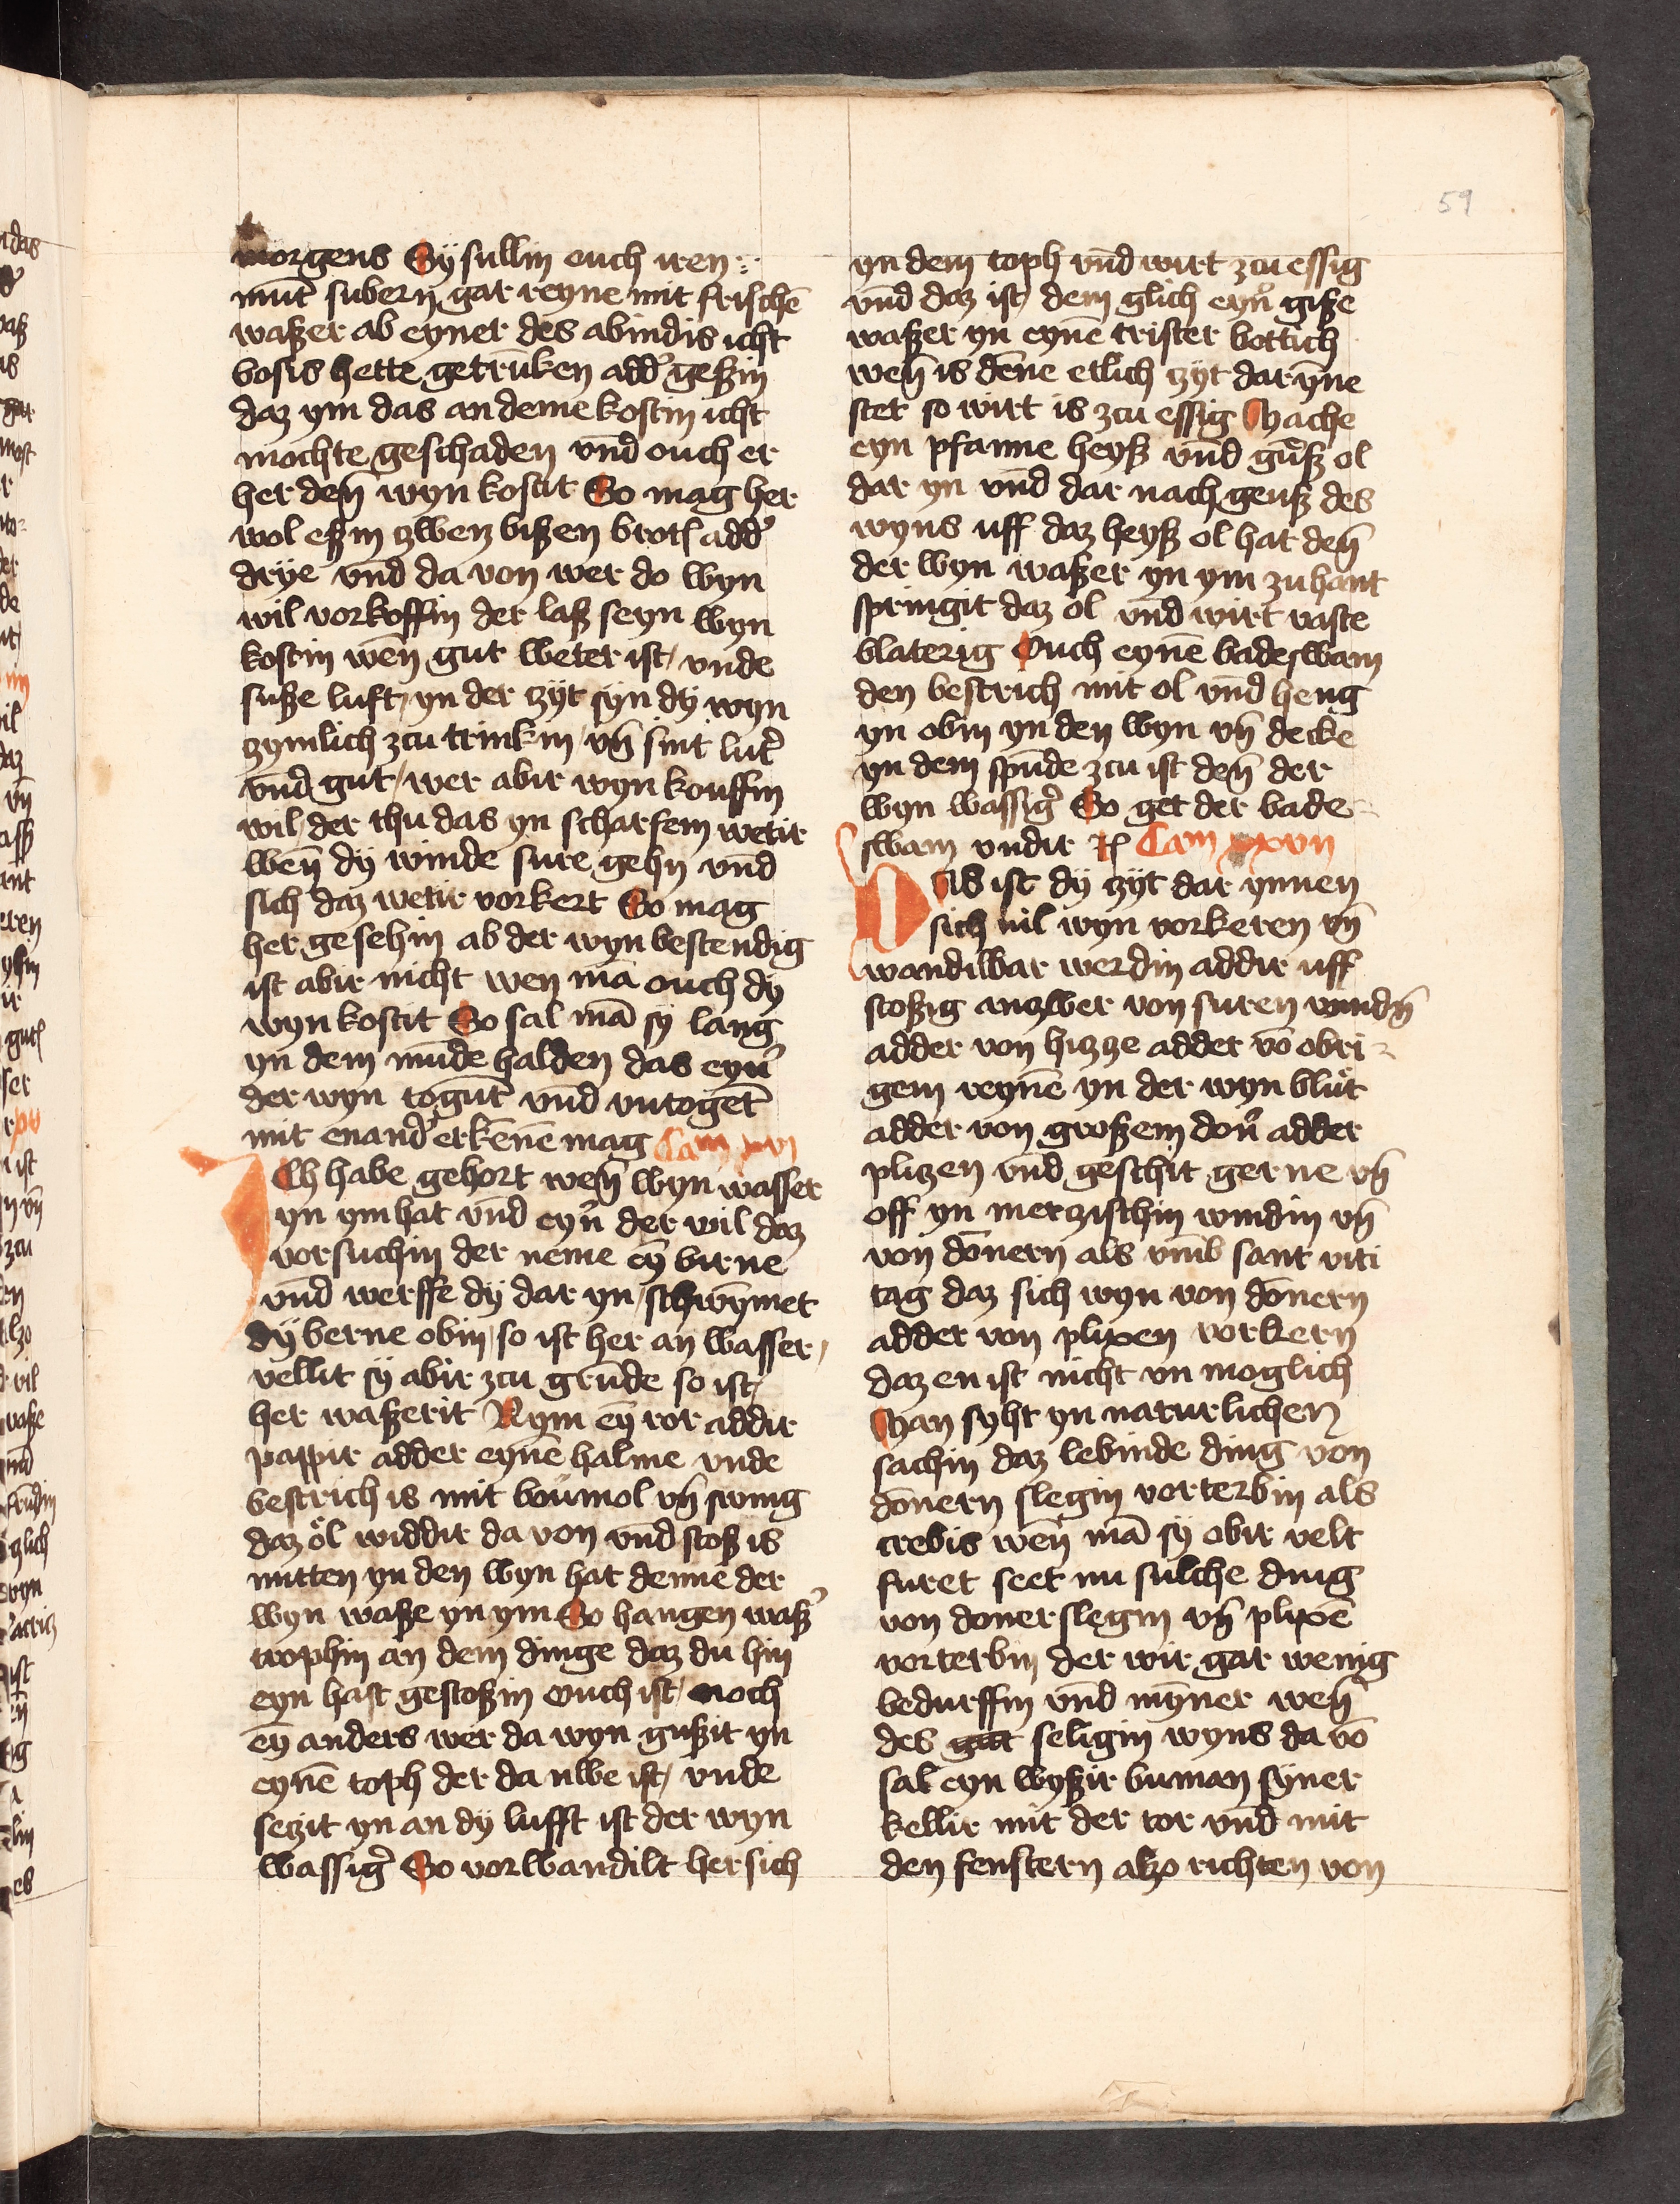 59
morgens Sÿ sullin ouch iren
mūt subern gar reyne mit frischē
waßer ab eyner des abindis icht
bosis hette getrūken add' geßin
daz ym das an deme kostin icht
mochte geschaden vn̄d ouch er
her den̄ wyn kostit So mag her
wol eßin zwenz bißen brotſ add'
drÿe vn̄d da von wer do wyn
wil vorkoffin der laß seyn wyn
kostin wen̄ gut weter ist / vnde
suße luft / yn der zÿt sÿn dÿ wyn
zymlich zcu trinkin / vn̄ sint lut'
vn̄d gut / wer abir wyn kouffin
wil / der thu das yn scharfem wetir
wen̄ dÿ winde sure gehn vn̄d
sich daz wetir vorkert So mag
her gesehin ab der wyn bestendig
ist abir nicht wen mā ouch dÿ
wyn kostit So sal mā sÿ lang
yn dem mūde halden das eyn'
der wyn togūt vn̄d vntoget
mit enand' erkēnē mag Cam xvi
Ich habe gehort wen̄ wyn wasser
yn ym hat vn̄d eyn' der wil daz
vorsuchin der neme eȳ birne
vn̄d werffe dÿ dar yn / schwȳmet
dÿ berne obin / so ist her an wasser /
vellit sÿ abir zcu grūde so ist /
her waßerit Nym eȳ ror addir
pappir adder eynē halme vnde
bestrich is mit boumol vn̄ swing
daz öl widdir da von vn̄d stoß is
mitten yn den wyn hat denne der
wyn waße yn ym So hangen waß'
trophin an dem dinge daz du hin
eyn hast gestoßin ouch ist / noch
eȳ anders wer da wyn gußit yn
eynē toph der da nwe ist / vnde
seczit yn an dÿ lufft ist der wyn
wassig' So vorwandilt her sich
yn dem toph vn̄d wirt zcu essig
vn̄d daz ist / dem glich eyn' giße
waßer yn eynē trister bottich
wen̄ is dēne etlich zÿt darȳne
stet so wirt is zcu essig Mache
eyn pfanne heyß vn̄d gūß ol
dar yn vn̄d dar nach geuß des
wyns uff daz heyß ol hat den̄
der wyn waßer yn ym zu hant
springit daz ol vn̄d wirt vaste
blaterig Ouch eynē badeswam
den bestrich mit ol vn̄d heng
yn obin yn den wyn vn̄ decke
yn dem spūde zcu ist den̄ der
wyn wassig' So get der bade-
swam vndir rſ Cam xxvii
Das ist dÿ zÿt dar ynnen
sich uil wyn vorkeren vn̄
wandilbar werdin addir uff
stoßig anzwer von suren windn̄
adder von hizze adder vō obri-
gem reynē yn der wyn blut
adder von großem don' adder
plizen vn̄d geschit gerne vn̄
off yn merzischin windin vn̄
von dōnern als vmb sant viti
tag daz sich wyn von dōnern
adder von plixen vorkern
daz en ist nicht vn moglich
Man syht yn naturlichen
sachin daz lebinde ding von
dōnern slegin vorterbin als
crebis wen̄ mā sÿ obir velt
furet seet nu sulche ding
von donerslegin vn̄ plixē
vorterbin der wir gar wenig
bedurffin vn̄d mȳner wen̄
des gut seligin wyns da vō
sal eyn wyßir buman sÿner
kellir mit der tor vn̄d mit
den fenstern alzo richten von